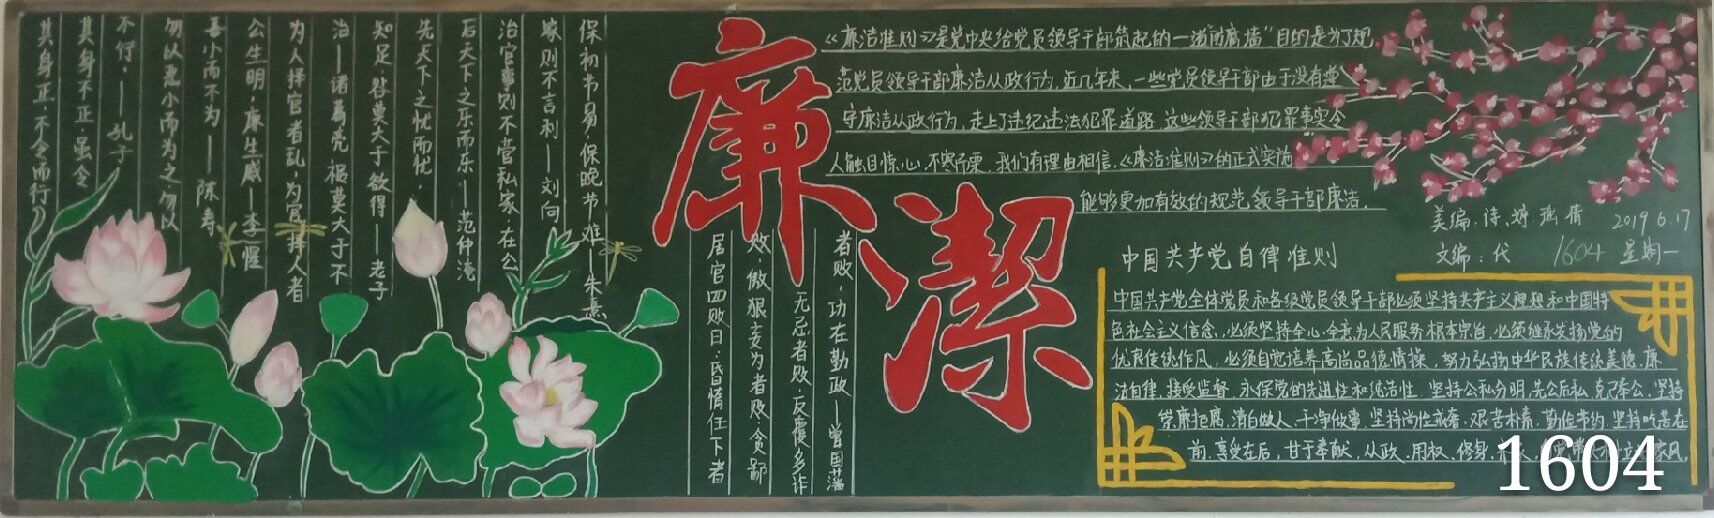 其身正，不令而行，
其身不正，虽令
不行，——孔子
勿以恶小而为之，勿以
善小而不为——陈寿
公生明，廉生威—李惺
为人择官者乱，为官择人者
治—诸葛亮 祸莫大于不
知足，咎莫大于欲得—老子
先天下之忧而忧，
后天下之乐而乐—范仲淹
治官事则不营私家，在公
家则不言利—刘向
保初节易，保晚节难—朱熹
廉潔
居官四败曰：昏惰任下者
败，傲狠妄为者败，贪鄙
无忌者败，反覆多诈
者败，功在勤政—曾国藩
《廉洁准则》是党中央给党员领导干部筑起的一道“防腐墙”目的是为了规
范党员领导干部廉洁从政行为，近几年来，一些党员领导干部由于没有遵
守廉洁从政行为，走上了违纪违法犯罪道路，这些领导干部犯罪事实令
人触目惊心，不寒而栗，我们有理由相信，《廉洁准则》的正式实施
能够更加有效的规范领导干部廉洁。
美编：诗、婷、瑶、倩 2019 6.17
文编：代 1604 星期一
中国共产党自律准则
中国共产党全体党员和各级党员领导干部必须坚持共产主义理想和中国特
色社会主义信念，必须坚持全心全意为人民服务根本宗旨，必须继承发扬党的
优良传统作风，必须自觉培养高尚品德情操，努力弘扬中华民族传统美德，廉
洁自律，接受监督，永保党的先进性和纯洁性。坚持公私分明，先公后私，克己奉公，坚持
崇廉拒腐，清白做人，干净做事，坚持尚俭戒奢，艰苦朴素，勤俭节约，坚持吃苦在
前，享受在后，甘于奉献，从政、用权、修身、家风。
1604